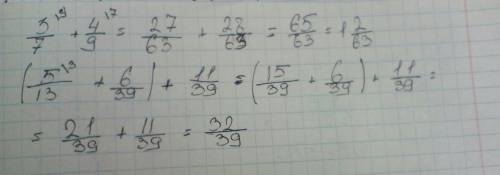 3/7 ⁹⁾ + 4/9 ⁷⁾ = 27/63 + 28/63 = 65/63 = 1 2/63
(5/13 ³⁾ + 6/39) + 11/39 = (15/39 + 6/39) + 11/39 =
= 21/39 + 11/39 = 32/39